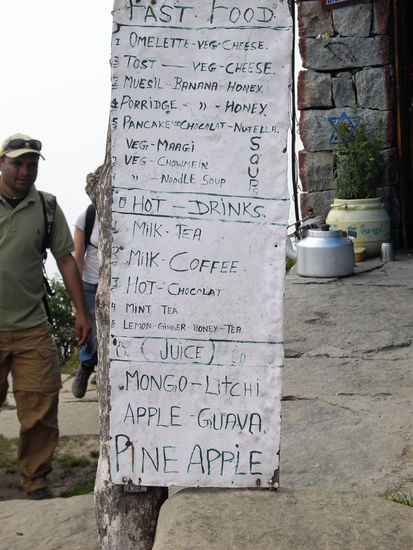 FAST. FOOD
1 OMELETTE-VEG-CHEESE.
2 TOST — VEG-CHEESE.
3 MUESIL-BANANA-HONEY.
4 PORRIDGE - ,, - HONEY.
5 PANCAKE CHOCOLAT-NUTELLA.
VEG-MAAGI
VEG-CHOWMEIN
,, -NOODLE SOUP
SOUP
HOT-DRINKS.
1 MILK-TEA
2 MILK-COFFEE.
3 HOT-CHOCOLAT
4 MINT TEA
5 LEMON-GINGER-HONEY-TEA.
(JUICE)
MONGO-LITCHI.
APPLE-GUAVA.
PINE APPLE